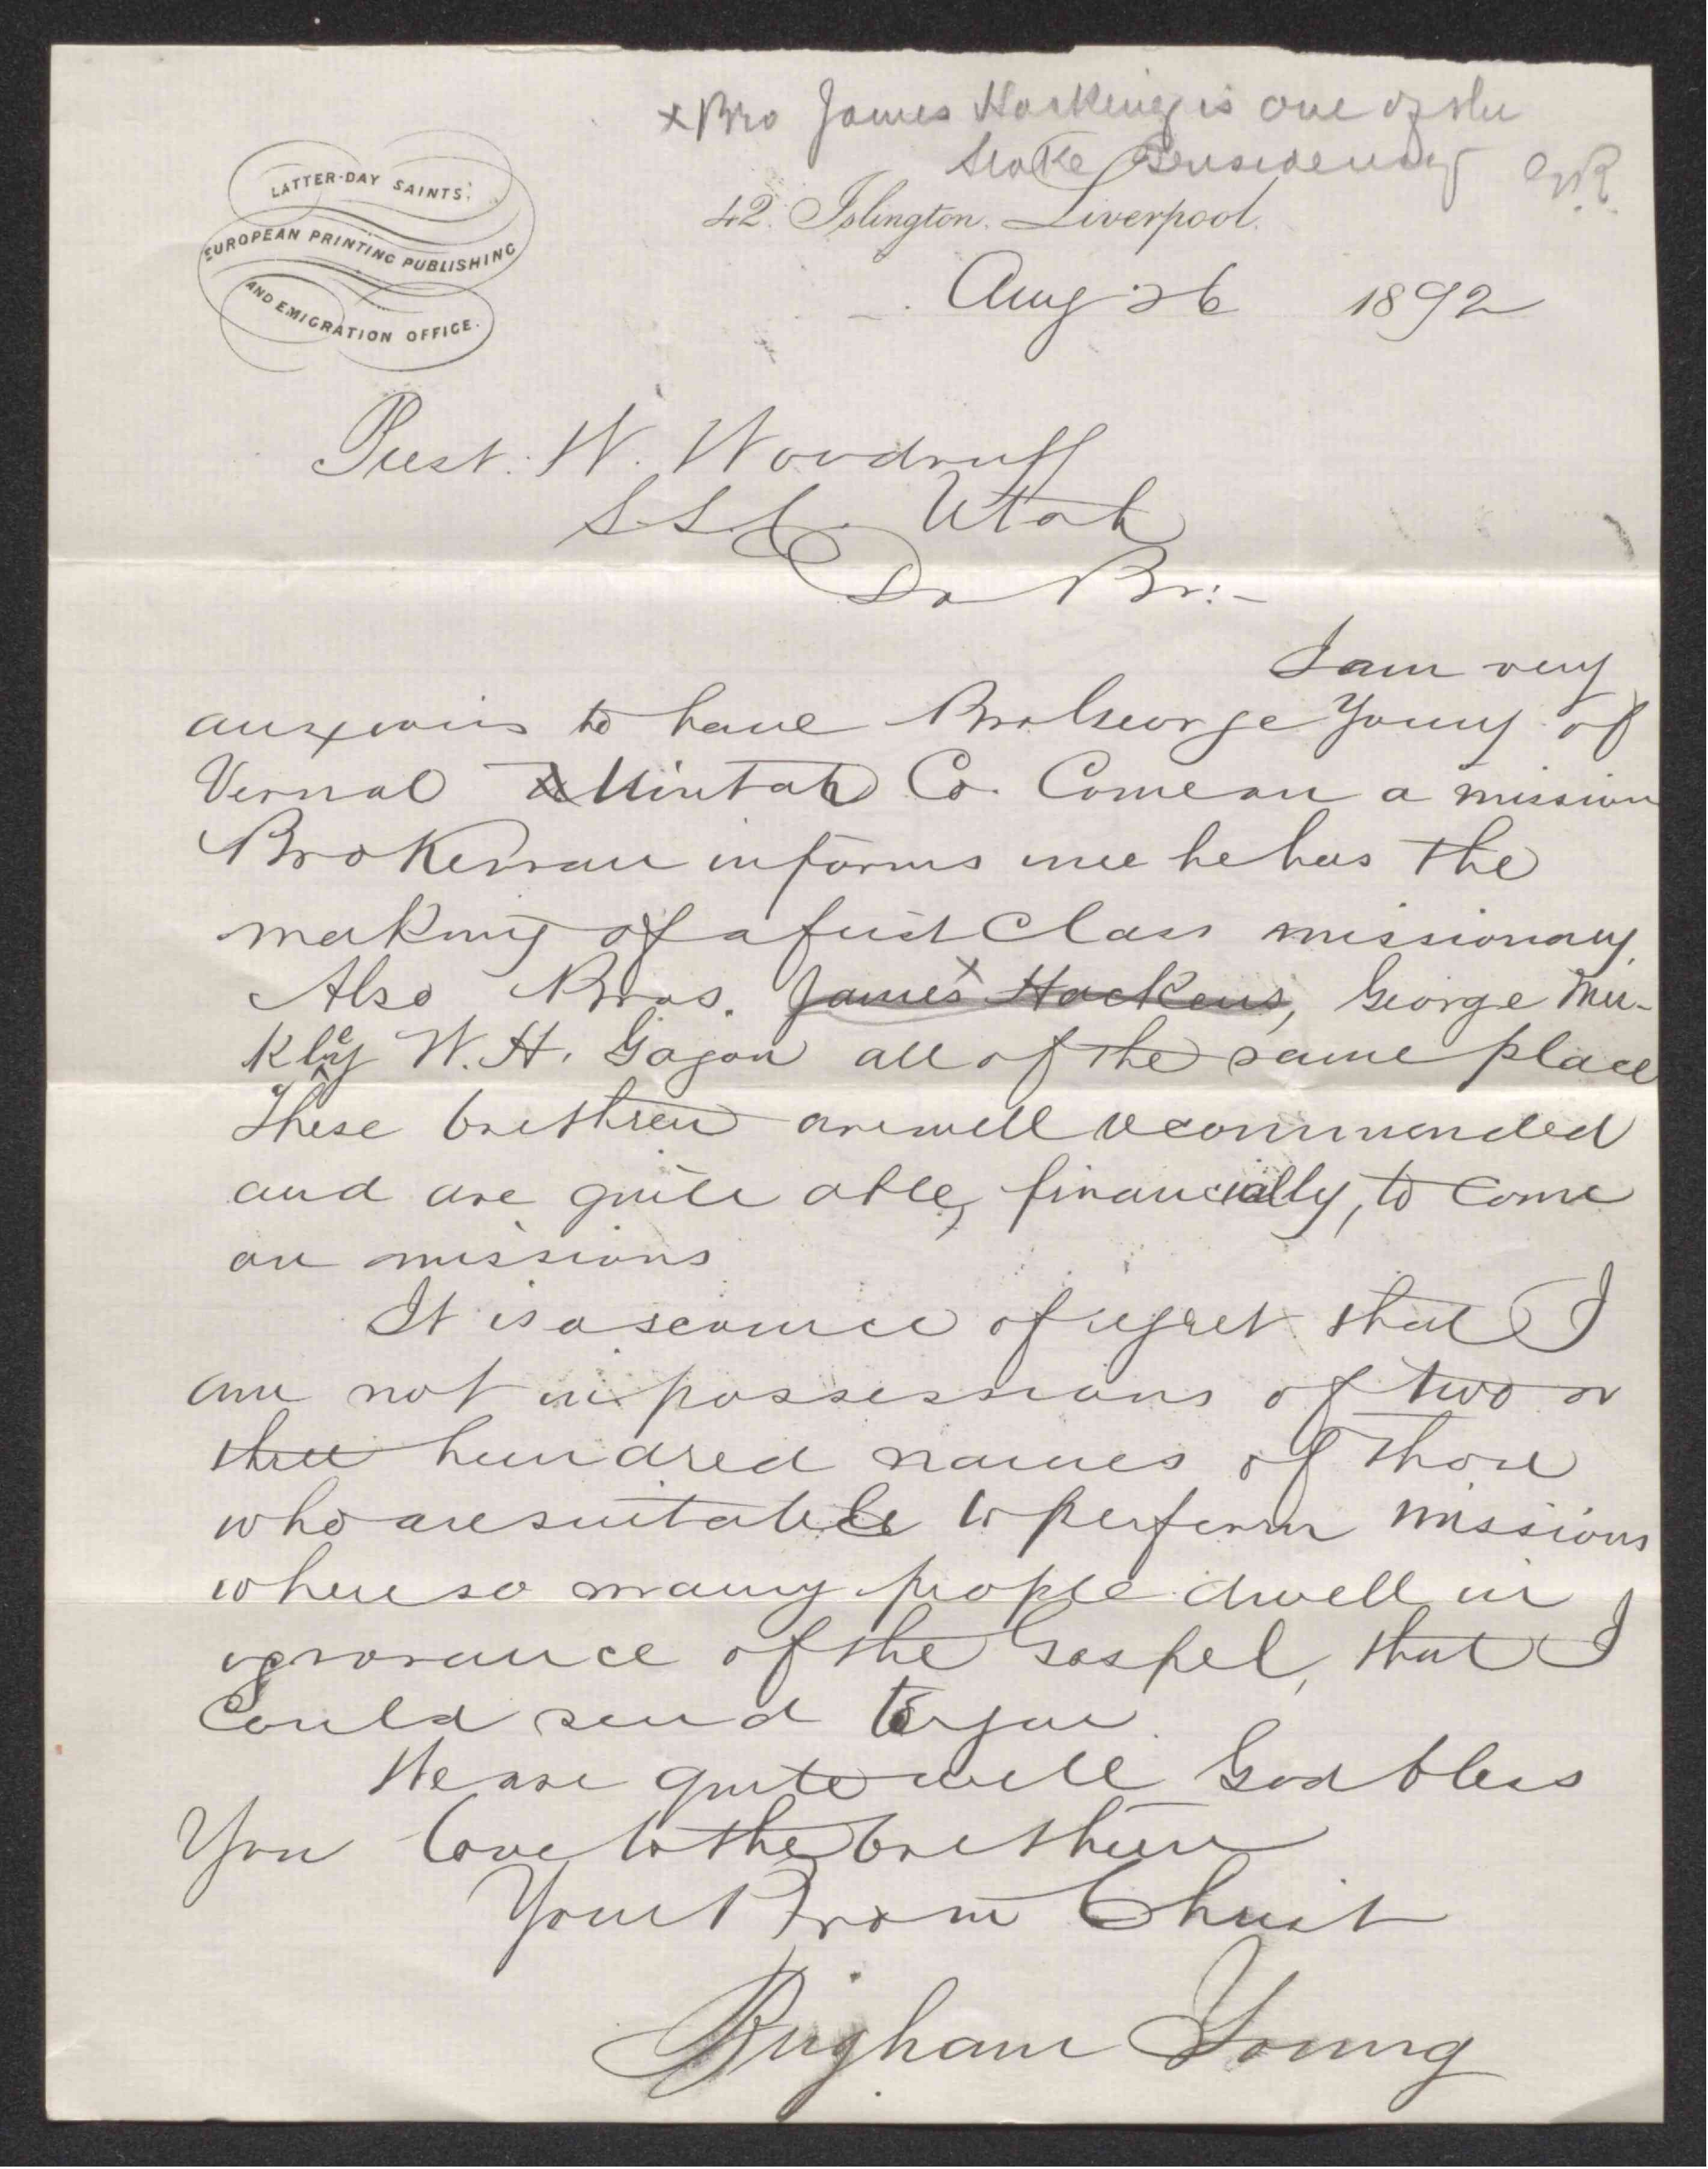 x Bro James Hacking is one of the
Stake Presidency GR
LATTER-DAY SAINTS'
EUROPEAN PRINTING PUBLISHING
AND EMIGRATION OFFICE.
42. Islington. Liverpool.
Aug 26 1892
Prest. W. Woodruff
S. L. C. Utah
Dr Br:-
I am very
anxious to have Bro George Young of
Vernal Uintah Co. Come on a mission
Bro Kerran informs me he has the
making of a first Class missionary.
Also Bros. James x Hackens, George Mer-
kley W. H. Gagon all of the same place
These brethren are well recommended
and are quite able, financially, to come
on missions
It is a scource of regret that I
am not in possessions of two or
three hundred names of those
who are suitable to perform missions
where so many people dwell in
ignorance of the Gospel, that I
Could send to you.
We are quite well God bless
You love to the brethren
Your Bro in Christ
Brigham Young